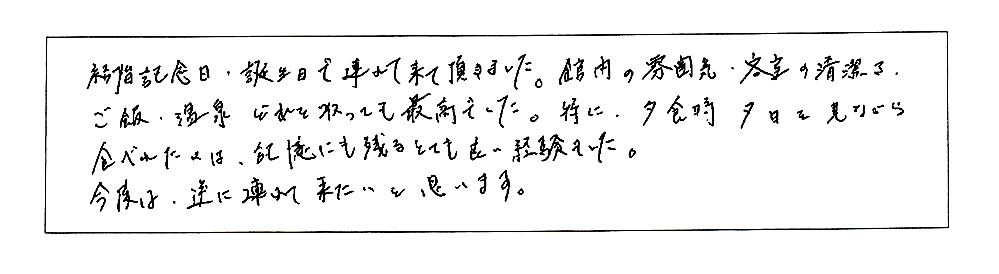 結婚記念日・誕生日で連れて来て頂きました。館内の雰囲気・客室の清潔さ、
ご飯・温泉 どれを取っても最高でした。特に、夕食時 夕日を見ながら
食べれたのは、記憶にも残るとても良い経験でした。
今度は、逆に連れて来たいと思います。